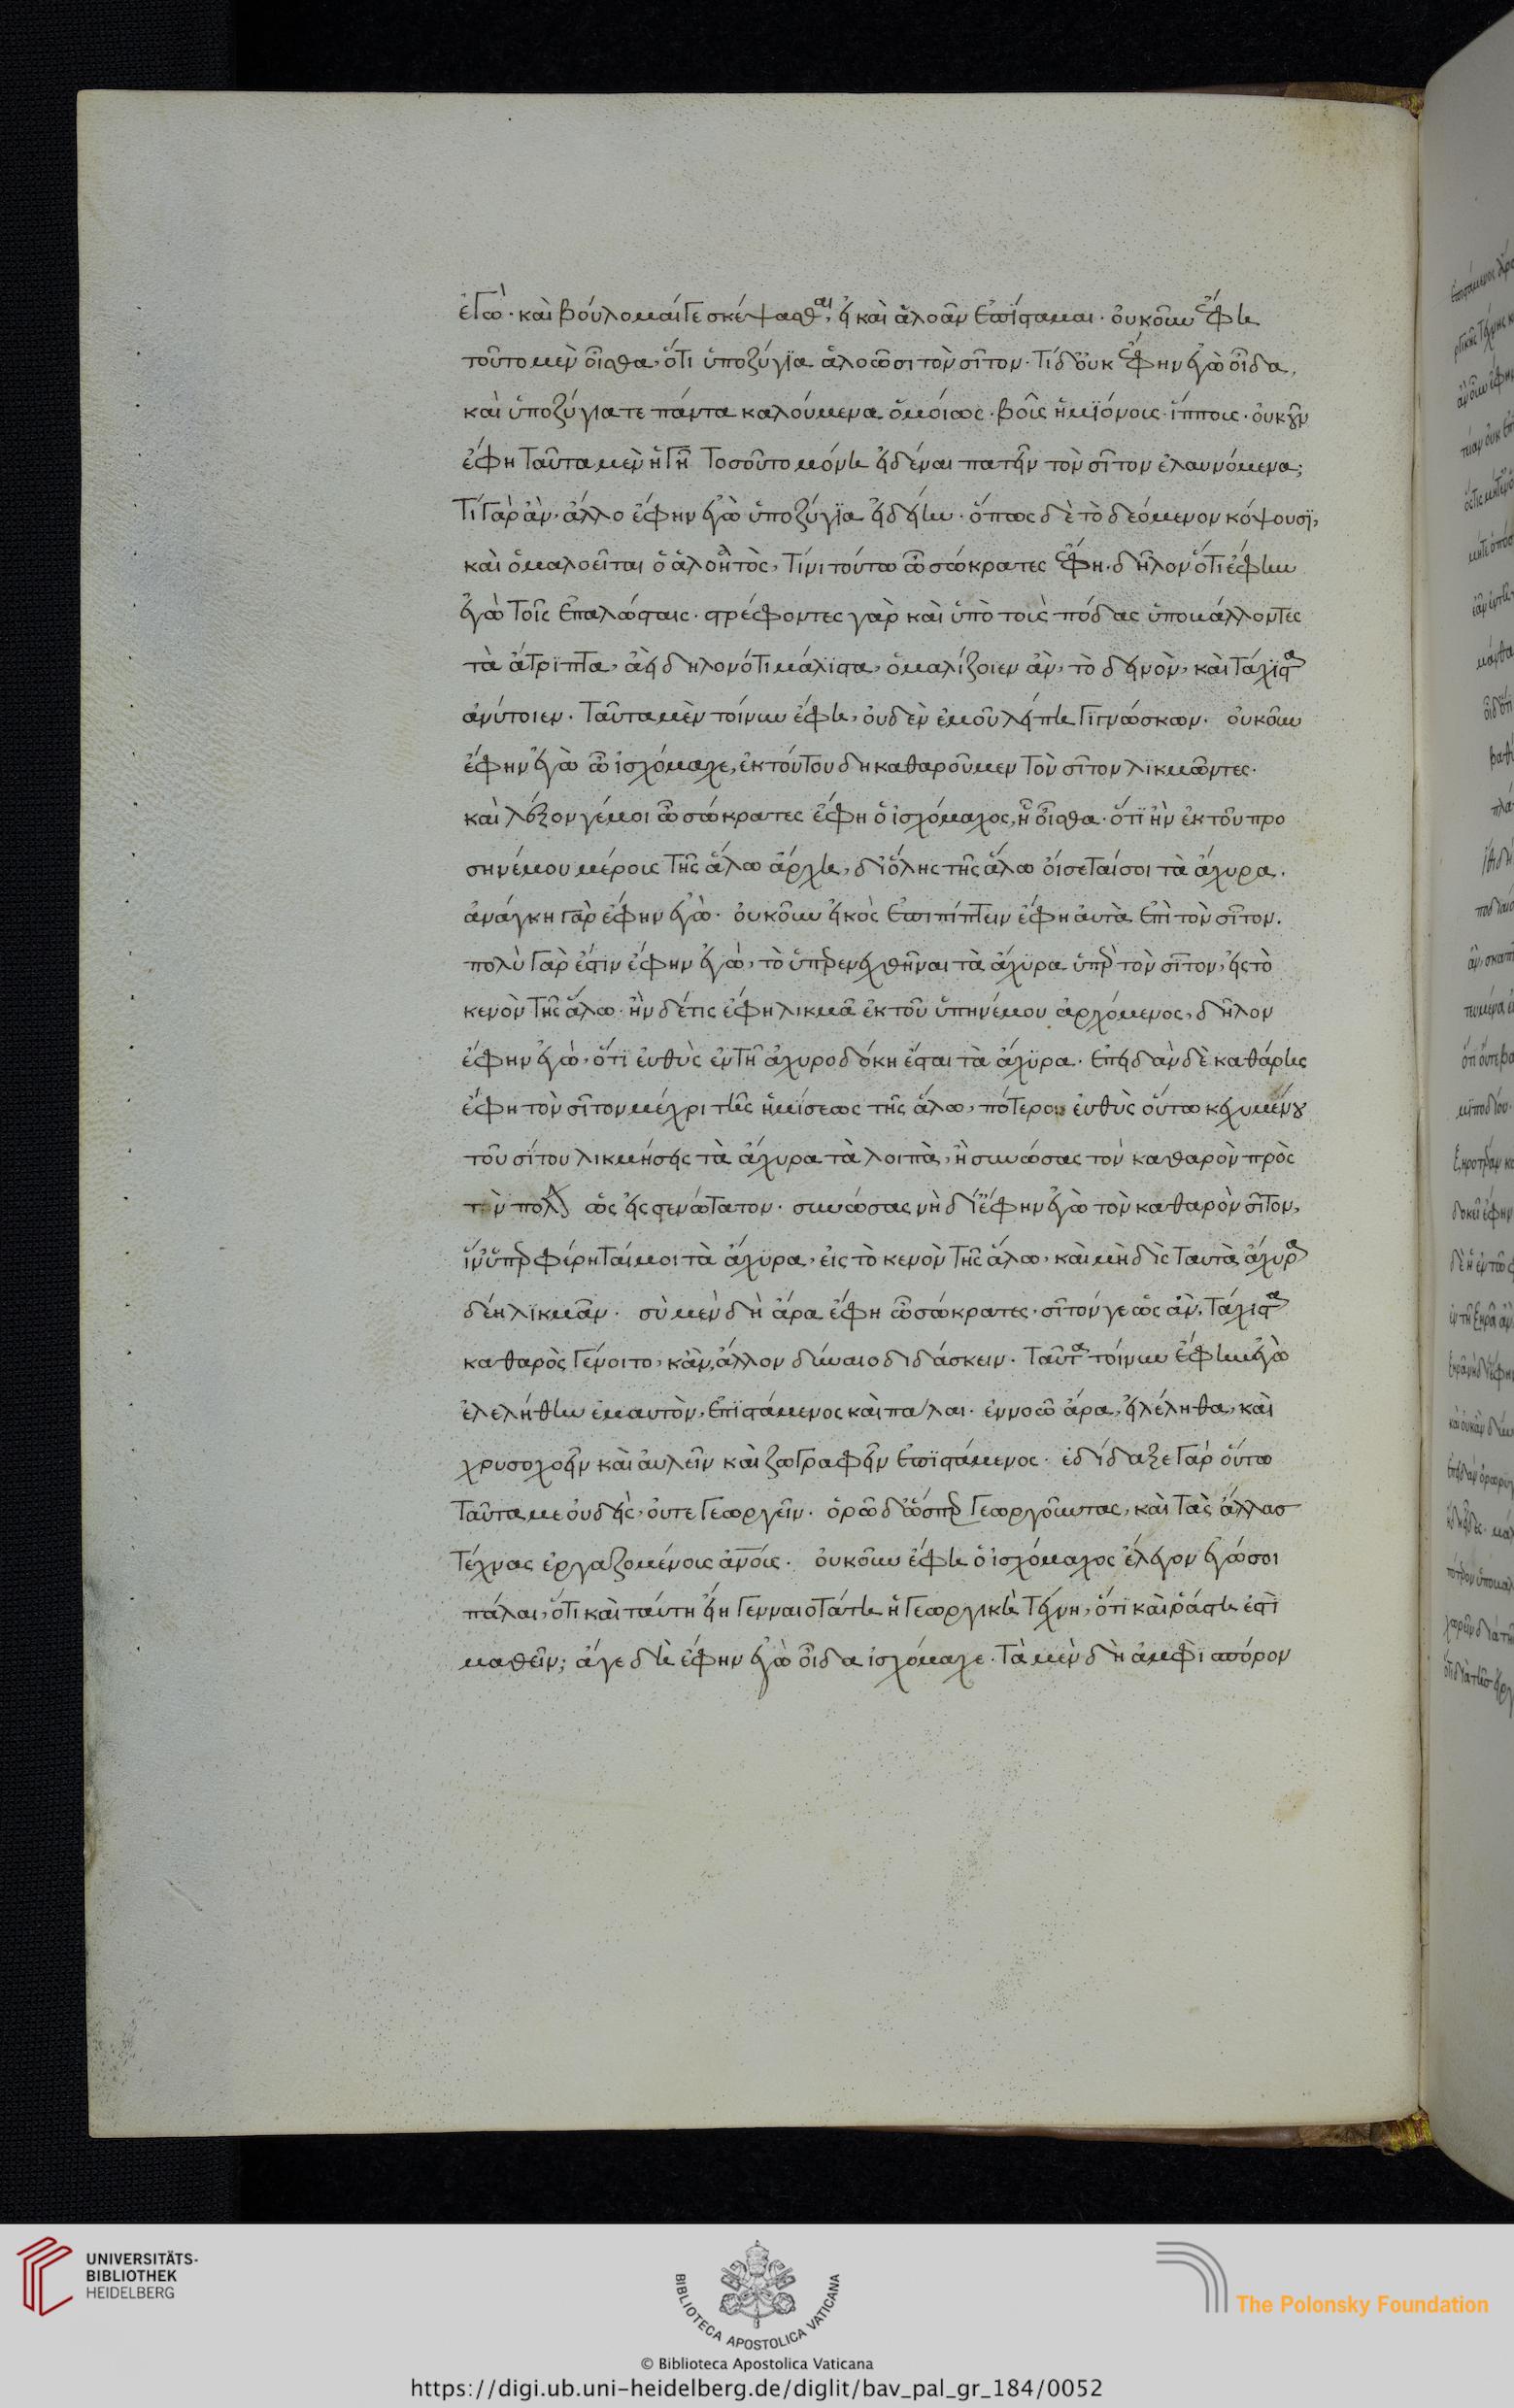 ἐγώ· καὶ βούλομαί γε σκέψασθαι, εἰ καὶ ἀλοᾶν ἐπίσταμαι· οὐκοῦν ἔφη
τοῦτο μὲν οἶσθα, ὅτι ὑποζύγϊα ἁλοῶσι τὸν σῖτον· τί δ' οὐκ ἔφην ἐγὼ οἶδα,
καὶ ὑποζύγια τε πάντα καλούμενα ὁμοίως· βοῦς ἡμϊόνους· ἵππους· οὐκοῦν
ἔφη ταῦτα μὲν ἡγῆ τοσοῦτο μόνη εἰδέναι πατεῖν τὸν σῖτον ἐλαυνόμενα;
τί γὰρ ἂν· ἄλλο ἔφην ἐγὼ ὑποζύγϊα εἰδείη· ὅπως δὲ τὸ δεόμενον κόψουσϊ,
καὶ ὁμαλοεῖται ὁ ἁλοητὸς, τίνι τούτω ὦ σώκρατες ἔφη· δῆλον ὅτι ἔφην
ἐγὼ τοῖς ἐπαλώσταις· στρέφοντες γὰρ καὶ ὑπὸ τοὺς πόδας ὑποβάλλοντες
τὰ ἄτρϊπτα, ἀεὶ δηλονότι μάλϊστα, ὁμαλίζοιεν ἂν, τὸ δεινὸν, καὶ τάχιστα
ἀνύτοιεν· ταῦτα μὲν τοίνυν ἔφη, οὐδὲν ἐμοῦ λείπη γιγνώσκων· οὐκοῦν
ἔφην ἐγὼ ὦ ἰσχόμαχε, ἐκ τούτου δὴ καθαροῦμεν τὸν σῖτον λϊκμῶντες·
καὶ λέξον γέ μοι ὦ σώκρατες ἔφη ὁ ἰσχόμαχος, ἦ οἶσθα· ὅτϊ ἢν ἐκ τοῦ προ
σηνέμου μέρους τῆς ἅλω ἄρχη, δι' ὅλης τῆς ἅλω οἴσεταί σοι τὰ ἄχυρα.
ἀνάγκη γὰρ ἔφην ἐγώ· οὐκοῦν εἰκὸς ἐπιπίπτειν ἔφη αὐτὰ ἐπὶ τὸν σῖτον.
πολὺ γὰρ ἐστὶν ἔφην ἐγώ, τὸ ὑπερενεχθῆναι τὰ ἄχϋρα ὑπὲρ τὸν σῖτον, εἰς τὸ
κενὸν τῆς ἅλω· ἢν δέ τις ἔφη λικμᾶ ἐκ τοῦ ὑπηνέμου ἀρχόμενος, δῆλον
ἔφην ἐγώ, ὅτϊ εὐθὺς ἐν τῆ ἀχυροδόκη ἔσται τὰ ἄχϋρα· ἐπειδὰν δὲ καθάρης
ἔφη τὸν σῖτον μέχρι τῆς ἡμίσεως τῆς ἅλω, πότερον εὐθὺς οὕτω κεχυμένου
τοῦ σίτου λικμήσεις τὰ ἄχυρα τὰ λοιπὰ, ἢ συνώσας τὸν καθαρὸν πρὸς
τὸν πόλον ὡς εἰς στενώτατον· συνώσας νὴ δί' ἔφην ἐγὼ τὸν καθαρὸν σῖτον,
ἵν' ὑπερφέρηταί μοι τὰ ἄχϋρα, εἰς τὸ κενὸν τῆς ἅλω, καὶ μὴ δὶς ταυτὰ ἄχυρα
δέη λϊκμᾶν· σὺ μὲν δὴ ἄρα ἔφη ὦ σώκρατες· σῖτόν γε ὡς ἂν, τάχιστα
καθαρὸς γένοιτο, κἂν, ἄλλον δύναιο διδάσκειν· ταῦτα τοίνυν ἔφην ἐγὼ
ἐλελήθην ἐμαυτὸν, ἐπϊστάμενος καὶ πάλαι· ἐννοῶ ἄρα, εἰ λέληθα, καὶ
χρυσοχοεῖν καὶ αὐλεῖν καὶ ζωγραφεῖν ἐπϊστάμενος· ἐδίδαξε γάρ οὔτω
ταῦτα με οὐδεὶς, οὔτε γεωργεῖν· ὁρῶ δ' ὥσπερ γεωργοῦντας, καὶ τὰς ἄλλασ
τέχνας ἐργαζομένους ἀν̅ους· οὐκοῦν ἔφη ὁ ἰσχόμαχος ἔλεγον ἐγώ σοι
πάλαι, ὅτι καὶ ταύτη εἴη γενναιοτάτη ἡ γεωργικὴ τέχνη, ὅτϊ καὶ ῥάστη ἐστϊ
μαθεῖν; ἄγε δὴ ἔφην ἐγὼ οἶδα ἰσχόμαχε· τὰ μὲν δὴ ἀμφὶ σπόρον
UNIVERSITÄTS-
BIBLIOTHEK
HEIDELBERG
BIBLIOTECA APOSTOLICA VATICANA
The Polonsky Foundation
© Biblioteca Apostolica Vaticana
https://digi.ub.uni-heidelberg.de/diglit/bav_pal_gr_184/0052